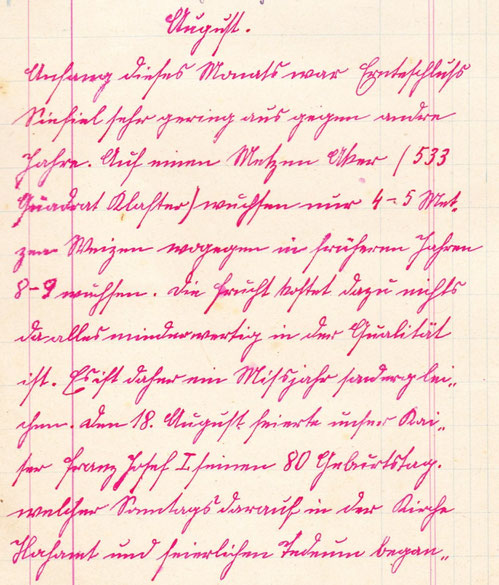 August.
Anfang dieses Monats war Ernteschluss
Sie fiel sehr gering aus gegen andre
Jahre. Auf einen Metzen Aker (533
Quadrat Klafter) wuchsen nur 4-5 Met-
zen Weizen wogegen in früheren Jahren
8-9 wuchsen. Die Frucht kostet dazu nichts
da alles minderwertig in der Qualität
ist. Es ist daher ein Missjahr sonderglei„
chen. Den 18. August feierte unser Kai„
ser Franz Josef I. seinen 80 Geburtstag.
welcher Sonntags darauf in der Kirche
Hohamt und feierlichen Tedeum began„